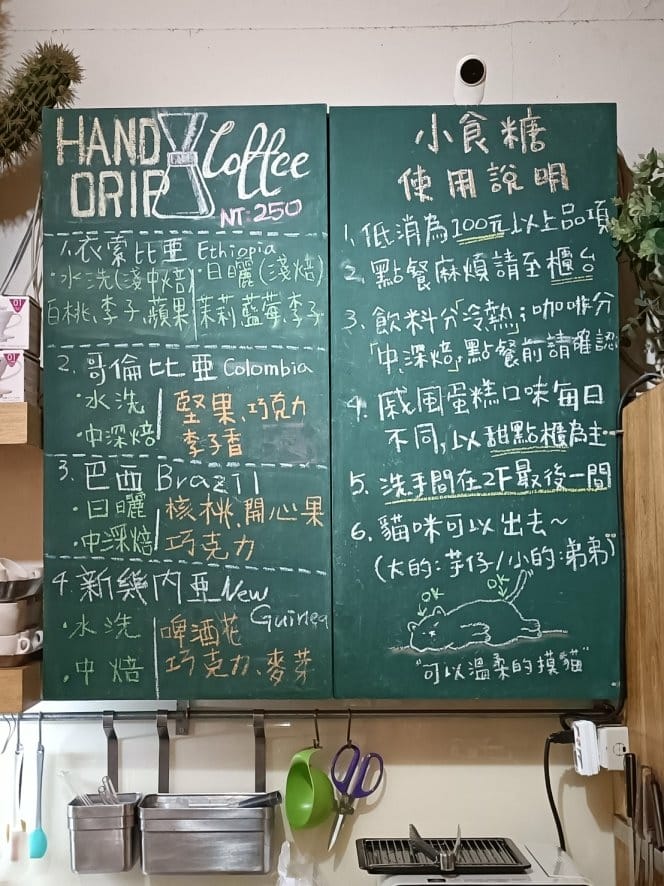 HAND DRIP Coffee
NT:250
1. 衣索比亞 Ethiopia
·水洗(淺中焙) ·日曬(淺焙)
白桃、李子、蘋果 茉莉、藍莓、李子
2. 哥倫比亞 Colombia
·水洗 堅果、巧克力
·中深焙 李子香
3. 巴西 Brazil
·日曬 核桃、開心果
·中深焙 巧克力
4. 新幾內亞 New Guinea
·水洗 啤酒花
·中焙 巧克力、麥芽
小食糖
使用說明
1. 低消為100元以上品項
2. 點餐麻煩請至櫃台
3. 飲料分「冷熱」;咖啡分
「中、深焙」點餐前請確認
4. 戚風蛋糕口味每日
不同,以甜點櫃為主
5. 洗手間在2F最後一間
6. 貓咪可以出去~
(大的:芋仔/小的:弟弟)
OK OK
"可以溫柔的摸貓"
01
01